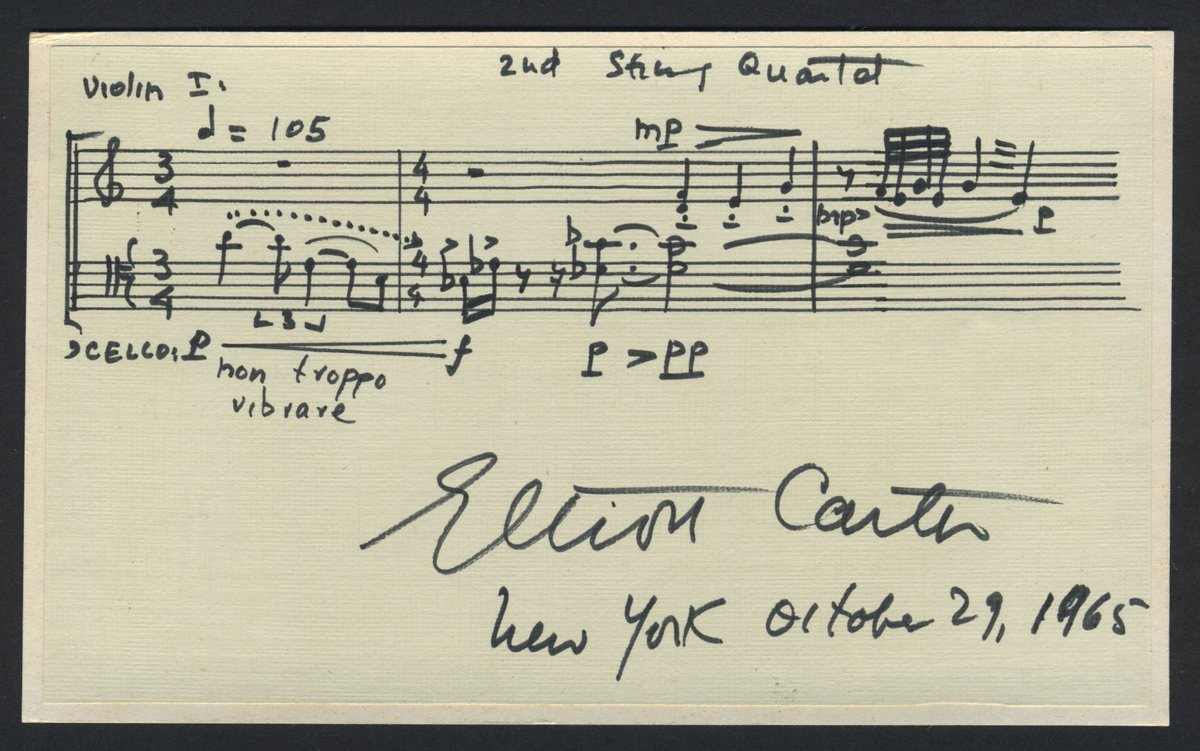 2nd String Quartet
Violin I.
♩ = 105
mp
3 4 4 4
mp> p
3 4 4 4
3
'CELLO: p f p > pp
non troppo
vibrare
Elliott Carter
New York October 29, 1965